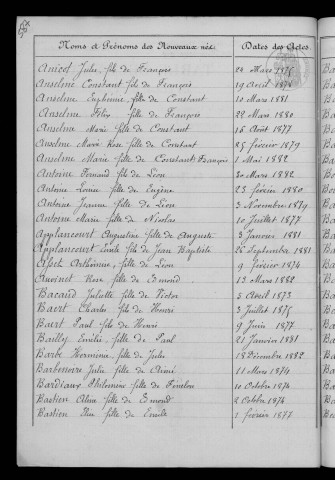 Noms et Prénoms des Nouveaux nés
Dates des Actes
Anicot Jules fils de François 24 Mars 1875
Anselme Constant fils de François 19 Avril 1876
Anselme Euphémie fille de Constant 10 Mars 1881
Anselme Félix fils de François 29 Mars 1880
Anselme Marie fille de Constant 16 Août 1877
Anselme Marie Rose fille de Constant 25 février 1879
Anselme Marie fille de Constant François 1 Mai 1882
Antoine Fernand fils de Léon 30 Mars 1882
Antoine Louise fille de Eugène 23 février 1880
Antoine Jeanne fille de Léon 3 Novembre 1879
Antoine Marie fille de Nicolas 10 Juillet 1877
Applancourt Augustine fille de Auguste 3 Janvier 1881
Applancourt Emile fils de Jean Baptiste 26 Septembre 1881
fille de Léon 9 février 1874
Auvinet Rose fille de Edmond 13 Mars 1882
Bacaud Juliette fille de Victor 5 Avril 1873
Baert Charles fils de Henri 3 Juillet 1875
Baert Paul fils de Henri 9 Juin 1877
Bailly Emélie fille de Paul 21 Janvier 1881
Barbe Hermine fille de Jules 18 Décembre 1882
Julie fille de Aimé 11 Mars 1874
Bardiaux Philomène fille de 10 Octobre 1874
Bastien Aline fille de Edmond 2 Octobre 1874
Bastien fille de Emile 1 février 1877